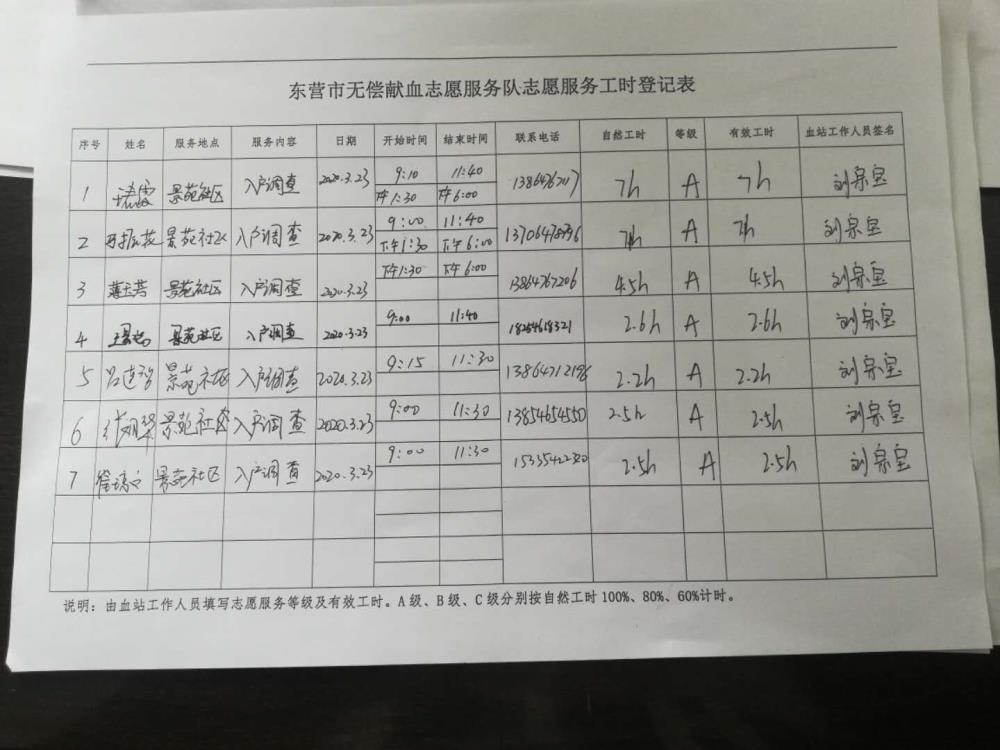 东营市无偿献血志愿服务队志愿服务工时登记表
序号 姓名 服务地点 服务内容 日期 开始时间 结束时间 联系电话 自然工时 等级 有效工时 血站工作人员签名
1 景苑社区 入户调查 2020.3.23 9:10 11:40 7h A 7h 刘宗宝
下午1:30 下午6:00
2 景苑社区 入户调查 2020.3.23 9:00 11:40 7h A 7h 刘宗宝
下午1:30 下午6:00
3 景苑社区 入户调查 2020.3.23 下午1:30 下午6:00 13864767206 4.5h A 4.5h 刘宗宝
4 景苑社区 入户调查 2020.3.23 9:00 11:40 18254618321 2.6h A 2.6h 刘宗宝
5 景苑社区 入户调查 2020.3.23 9:15 11:30 2.2h A 2.2h 刘宗宝
6 景苑社区 入户调查 2020.3.23 9:00 11:30 13854654550 2.5h A 2.5h 刘宗宝
7 景苑社区 入户调查 2020.3.23 9:00 11:30 2.5h A 2.5h 刘宗宝
说明：由血站工作人员填写志愿服务等级及有效工时。A级、B级、C级分别按自然工时100%、80%、60%计时。